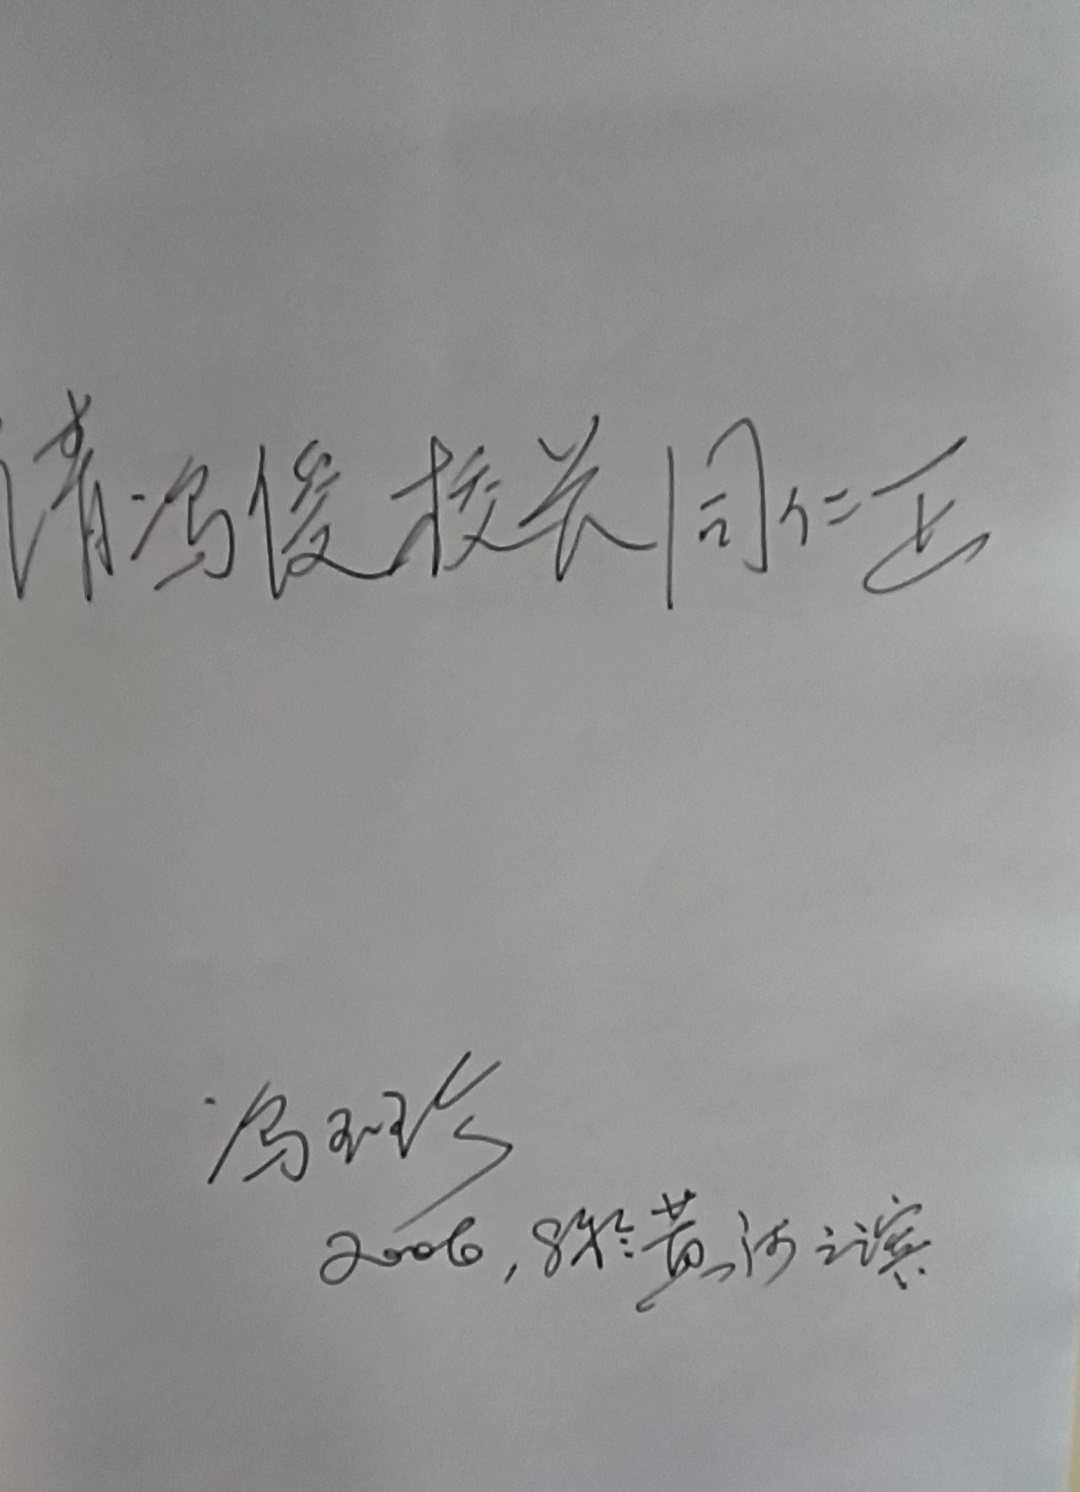 请冯俊校长同仁正
冯玉珍
2006,8于黄河之滨